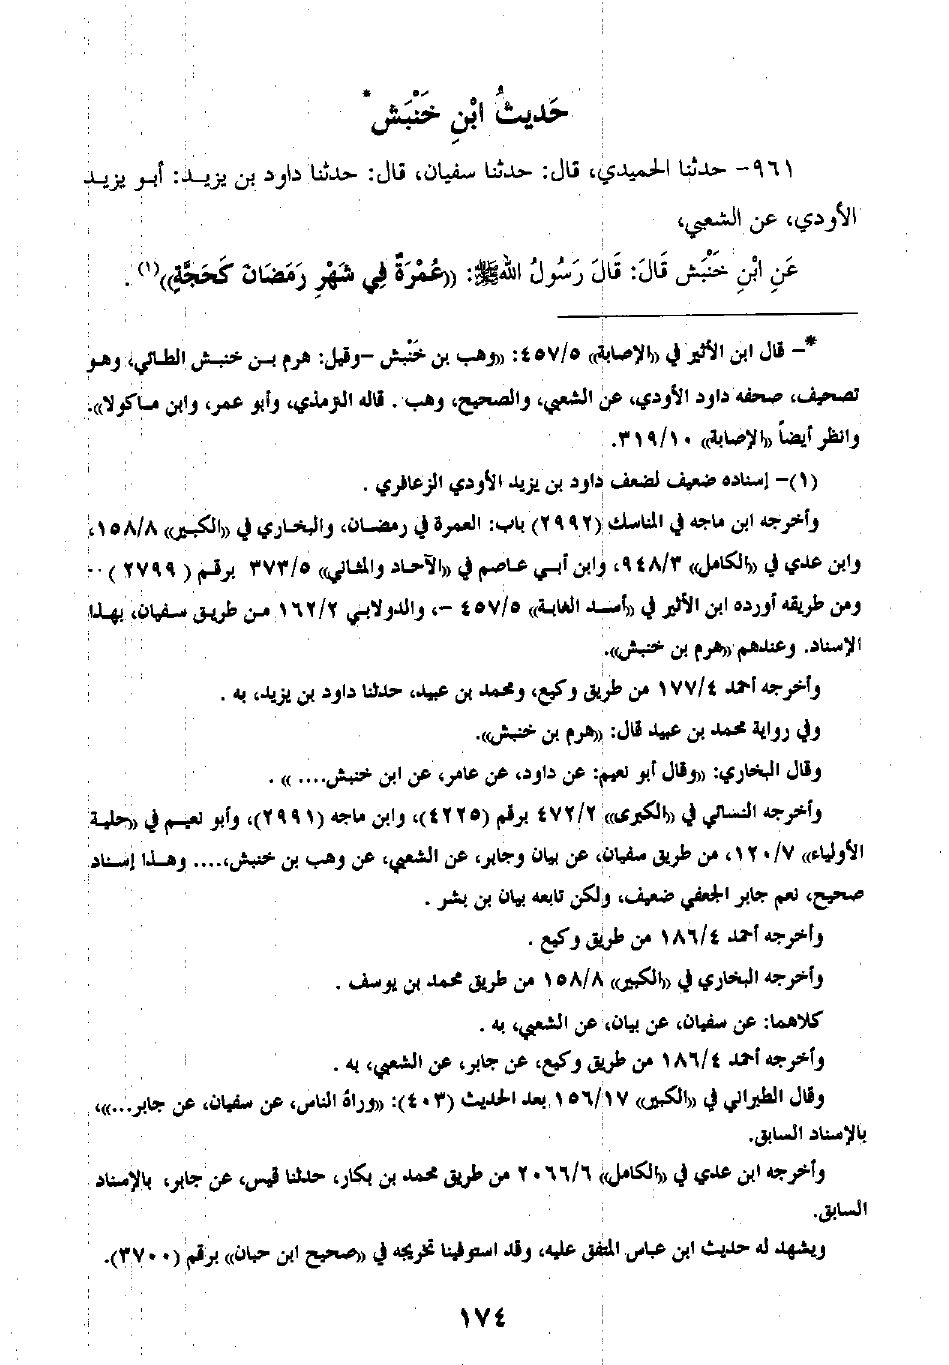 حَديثُ ابْنِ خَنْبَش*
٩٦١- حدثنا الحميدي، قال: حدثنا سفيان، قال: حدثنا داود بن يزيد: أبو يزيد
الأودي، عن الشعبي،
عَنِ ابْنِ خَنْبَش قَالَ: قَالَ رَسُولُ اللهﷺ: ((عُمْرَةٌ فِي شَهْرِ رَمَضَانَ كَحَجَّةٍ))(١) .
*- قال ابن الأثير في ((الإصابة)) ٤٥٧/٥: ((وهب بن خَنْبش -وقيل: هرم بن خنبش الطائي، وهو
تصحيف، صحفه داود الأودي، عن الشعبي، والصحيح، وهب . قاله الترمذي، وأبو عمر، وابن ماكولا)).
وانظر أيضاً ((الإصابة)) ٣١٩/١٠.
(١)- إسناده ضعيف لضعف داود بن يزيد الأودي الزعافري .
وأخرجه ابن ماجه في المناسك (٢٩٩٢) باب: العمرة في رمضان، والبخاري في ((الكبير)) ١٥٨/٨،
وابن عدي في ((الكامل)) ٩٤٨/٣، وابن أبي عاصم في ((الآحاد والمثاني)) ٣٧٣/٥ برقم (٢٧٩٩) --
ومن طريقه أورده ابن الأثير في ((أسد الغابة)) ٤٥٧/٥ -، والدولابي ١٦٢/٢ من طريق سفيان، بهذا
الإسناد. وعندهم ((هرم بن خنبش)).
وأخرجه أحمد ١٧٧/٤ من طريق وكيع، ومحمد بن عبيد، حدثنا داود بن يزيد، به .
وفي رواية محمد بن عبيد قال: ((هرم بن خنبش)).
وقال البخاري: ((وقال أبو نعيم: عن داود، عن عامر، عن ابن خنبش.... )) .
وأخرجه النسائي في ((الكبرى)) ٤٧٢/٢ برقم (٤٢٢٥)، وابن ماجه (٢٩٩١)، وأبو نعيم في ((حلية
الأولياء)) ١٢٠/٧، من طريق سفيان، عن بيان وجابر، عن الشعبي، عن وهب بن خنبش،.... وهذا إسناد
صحيح، نعم جابر الجعفي ضعيف، ولكن تابعه بيان بن بشر .
وأخرجه أحمد ١٨٦/٤ من طريق وكيع .
وأخرجه البخاري في ((الكبير)) ١٥٨/٨ من طريق محمد بن يوسف .
كلاهما: عن سفيان، عن بيان، عن الشعبي، به .
وأخرجه أحمد ١٨٦/٤ من طريق وكيع، عن جابر، عن الشعبي، به .
وقال الطبراني في ((الكبير)) ١٥٦/١٧ بعد الحديث (٤٠٣): ((ورأة الناس، عن سفيان، عن جابر...))،
بالإسناد السابق.
وأخرجه ابن عدي في ((الكامل)) ٢٠٦٦/٦ من طريق محمد بن بكار، حدثنا قيس، عن جابر، بالإسناد
السابق.
ويشهد له حديث ابن عباس المتفق عليه، وقد استوفينا تخريجه في ((صحيح ابن حبان)) برقم (٣٧٠٠).
١٧٤